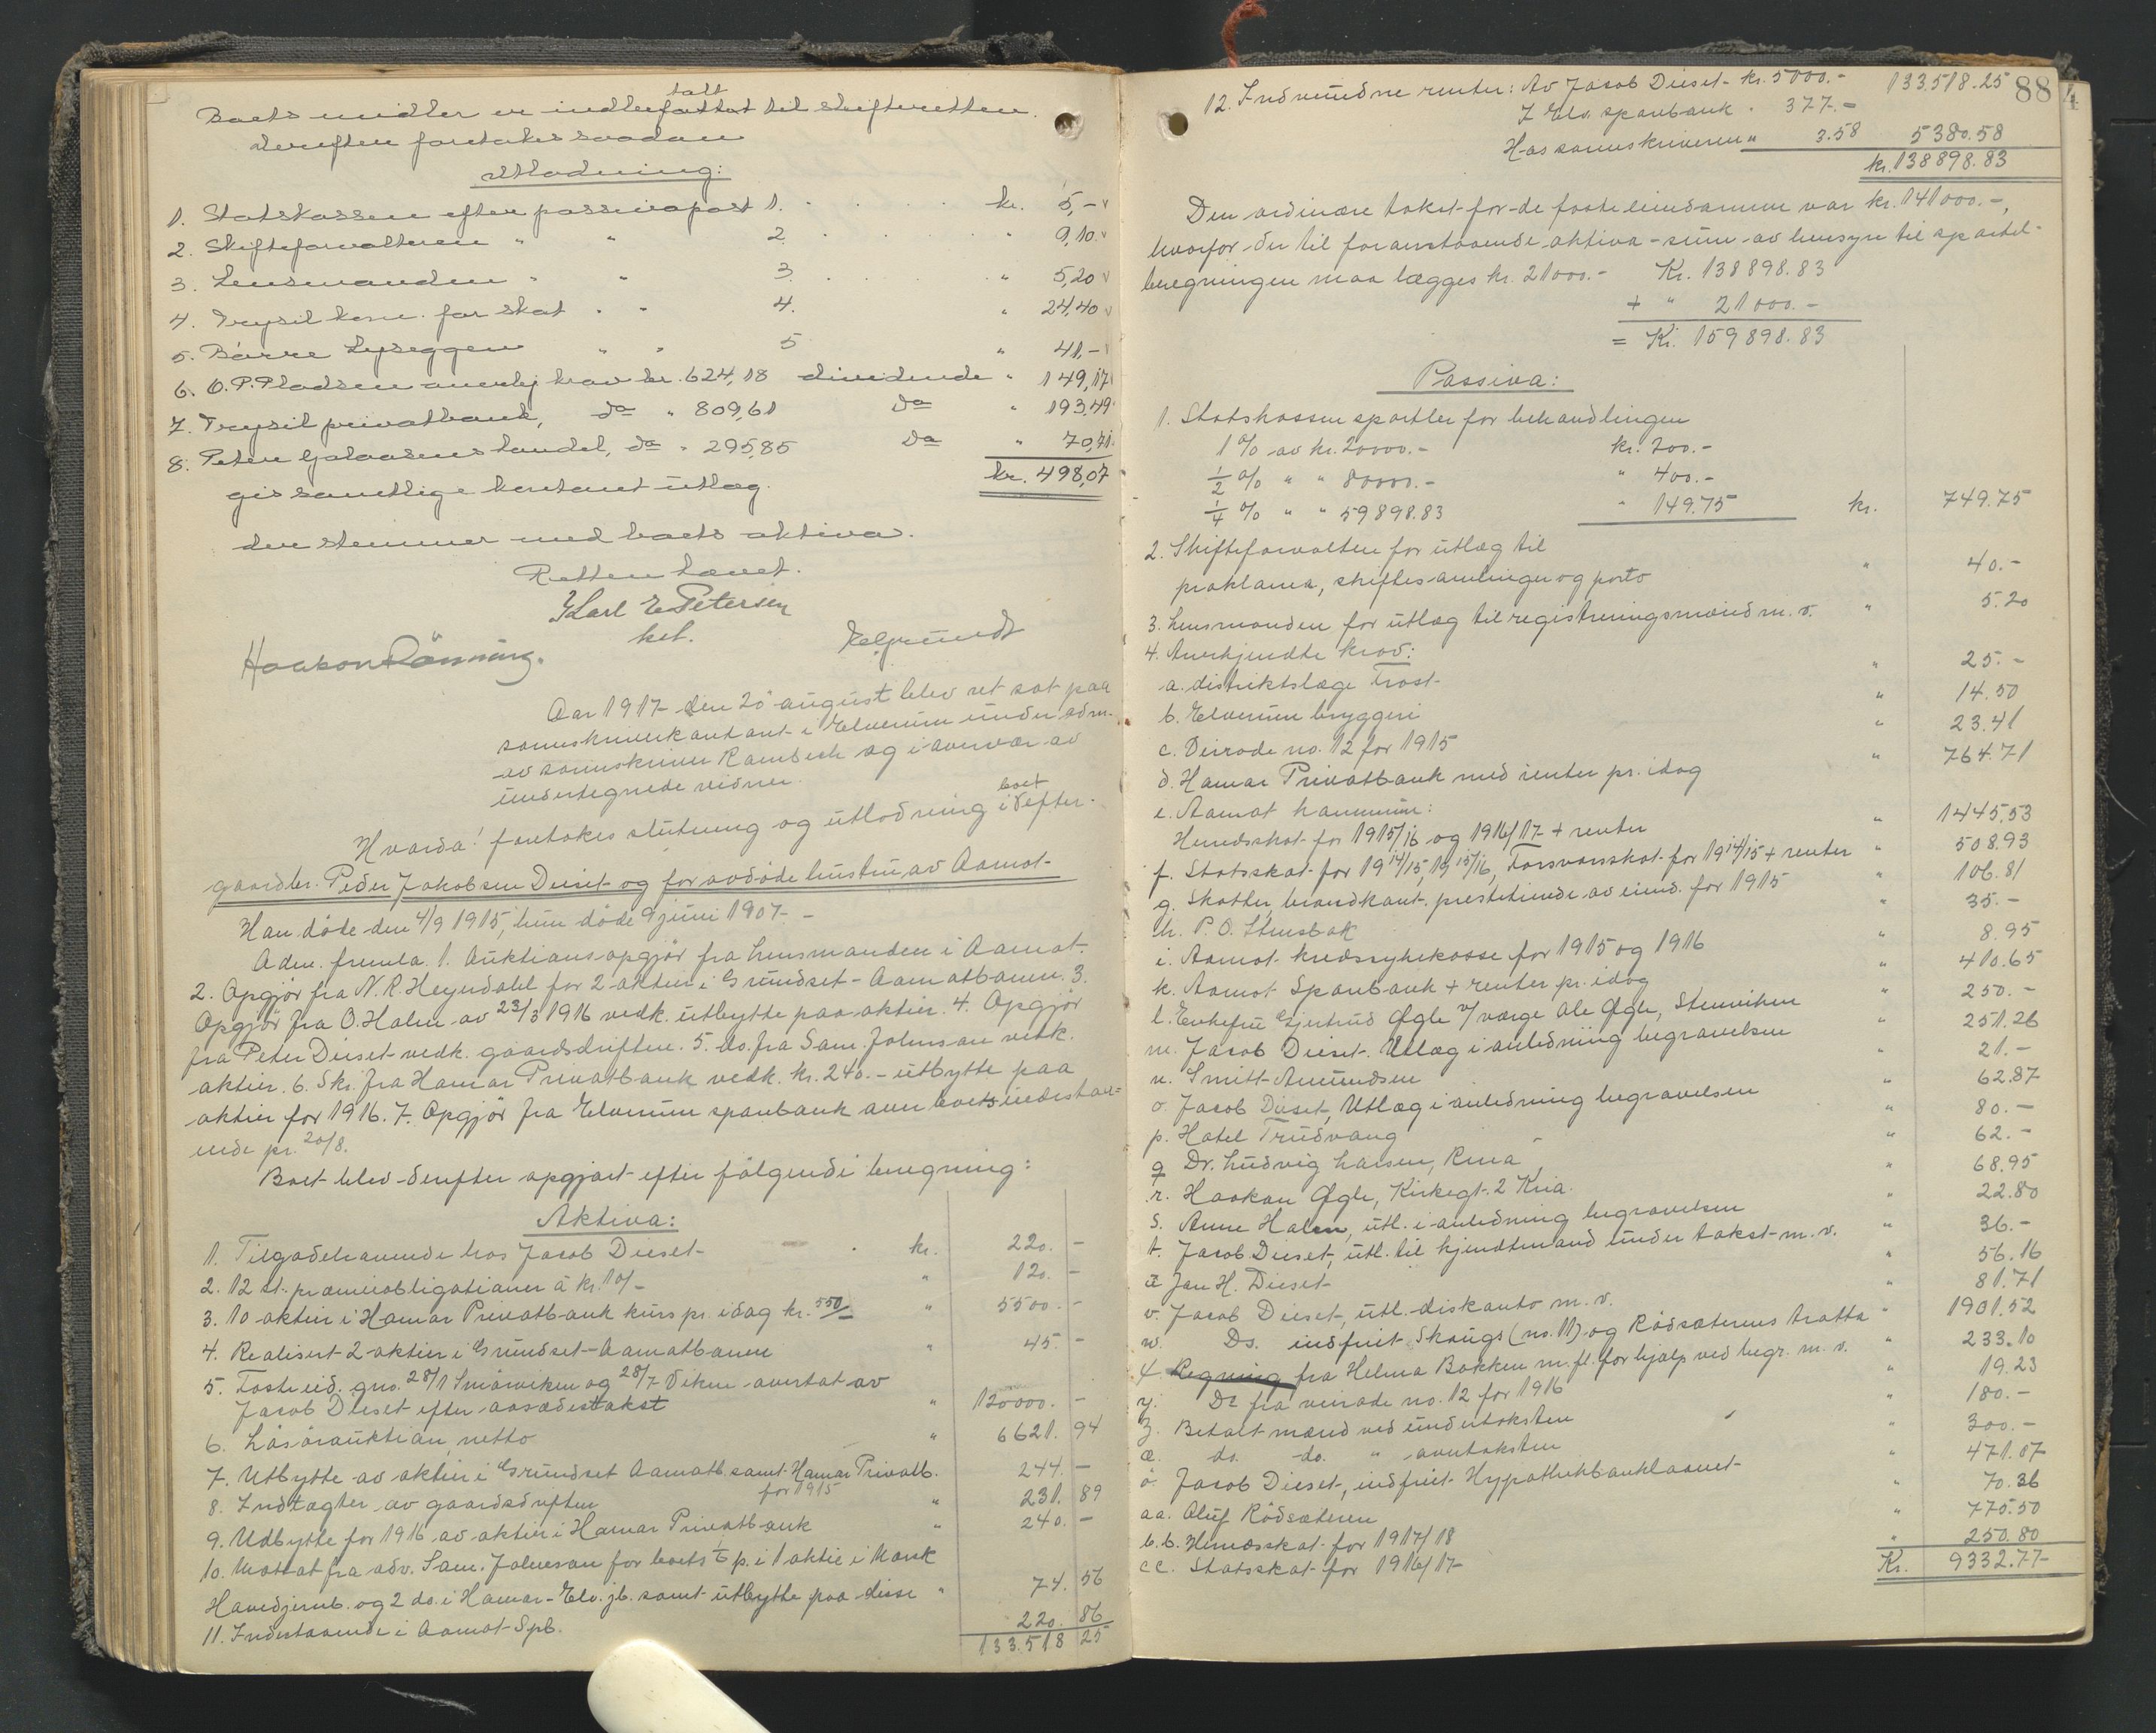 talt
Boets midler er indbefattet til skifteretten.
derefter foretokes saadan
Utlodning:
1. Statskassen efter passivapost 1. kr. 5,-
2. Skifteforvalteren " " 2. " 9,10
3. Lensmanden " " 3. " 5,20
4. Trysil kom. for skat " " 4. " 24,40
5. Bårre Lyseggen " " 5 " 41,-
6. O.P. Pladsen anerkj krav kr. 624,18 dividende " 149,17
7. Trysil privatbank, do " 809,61 do " 193,49
8. Peter Galaasens handel, do " 295,85 do " 70,71
gis samtlige kontant utlæg. kr. 498,07
der stemmer med boets aktiva.
Retten hævet.
Karl E Petersen
kst.
Haakon Rönning.
Aar 1917 den 20 august blev ret sat paa
sorenskriverkontoret i Elverum under adm.
av sorenskriver Rambech og i overvær av
undertegnede vidner.
Hvorda! foretokes slutning og utlodning i boet efter
gaardbr. Peder Jakobsen Deset og før avdöde hustru av Aamot
Han döde den 4/9 1915, hun döde 9 juni 1907.-
Adm. fremla. 1. Auktionsopgjör fra lensmanden i Aamot.
2. Opgjör fra N.R. Heyerdahl for 2 aktier i Grundset-Aamotbanen. 3.
Opgjör fra O. Holen av 23/3 1916 vedk. utbytte paa aktier. 4. Opgjör
fra Peter Deset vedk. gaardsdriften. 5. do. fra Sam. Johnson vedk.
aktier. 6. Skr. fra Hamar Privatbank vedk. kr. 240.- utbytte paa
aktier for 1916. 7. Opgjör fra Elverum sparebank over boets indestaa-
ende pr. 20/8.
Boet blev derefter opgjort efter fölgende beregning:
Aktiva:
1. Tilgodehavende hos Jacob Deset kr. 220. -
2. 12 st. præmieobligationer à kr. 10/- " 120. -
3. 10 aktier i Hamar Privatbank kurs pr. idag kr. 550/- " 5500. -
4. Realisert 2 aktier i Grundset-Aamotbanen " 45. -
5. Faste eid. gno. 28/1 Smårviken og 28/7 Viken overtat av
Jacob Deset efter aasædestakst " 120000. -
6. Løsöreauktion netto " 6621. 94
7. Utbytte av aktier i Grundset Aamotb. samt Hamar Privatb.
for 1915 244. -
8. Indtægter av gaardsdriften " 231. 89
9. Udbytte for 1916 av aktier i Hamar Privatbank " 240. -
10. Mottat fra adv. Sam. Johnson for boets 1/6 p. i 1 aktie i Norsk
Hovedjernb. og 2 do. i Hamar-Elv. jb. samt utbytte paa disse " 74. 56
11. Indestaaende i Aamot Spb. 220. 86
133.518 25
88 4
12. Indvundne renter: Av Jacob Deset kr. 5000.- 133.518.25
I Elv. sparebank " 377.-
Hos sorenskriveren " 3.58 5380.58
kr. 138898.83
Den ordinære takst for de faste eiendomme var kr. 141000.-,
hvorfor der til foranstaaende aktiva-sum av hensyn til sportel-
beregningen maa lægges kr. 21000.- Kr. 138898.83
+ " 21000.-
= Kr. 159898.83
Passiva:
1. Statskassen sportler for behandlingen
1 % av kr. 20000.- kr. 200.-
1/2 % " " 80000.- " 400.-
1/4 % " " 59898.83 " 149.75 kr. 749.75
2. Skifteforvalter for utlæg til
proklama, skiftesamlinger og porto " 40.-
3. Lensmanden for utlæg til registreringsmænd m.v. " 5.20
4. Anerkjendte krav:
a. distriktslæge Trost " 25.-
b. Elverum bryggeri " 14.50
c. Veirode no. 12 for 1915 " 23.41
d. Hamar Privatbank med renter pr. idag " 764.71
e. Aamot kommune:
Heredsskat for 1915/16 og 1916/17 + renter " 1445.53
f. Statsskat for 1914/15, 1915/16, Forsvarsskat for 1914/15 + renter " 508.93
g. Skatter, brandkont. prestetiende av eiend. for 1915 " 106.81
h. P.O. Stensbak " 35.-
i. Aamot kredssykekasse for 1915 og 1916 " 8.95
k. Aamot Sparebank + renter pr. idag " 410.65
l. Enkefru Gjertrud Øgle v/ værge Ole Øgle, Stenviken " 250.-
m. Jacob Deset. Utlæg i anledning begravelsen " 251.26
n. Smitt-Amundsen " 21.-
o. Jacob Deset, Utlæg i anledning begravelsen " 62.87
p. Hotel Trudvang " 80.-
q. Dr. Ludvig Larsen, Rena " 62.-
r. Haakon Øgle, Kirkegt. 2 Kria. " 68.95
s. Anne Halen, utl. i anledning begravelsen " 22.80
t. Jacob Deset, utl. til kjendtmand under takst m.v. " 36.-
u. Jon H. Deset " 56.16
v. Jacob Deset, utl. diskonto m.v. " 81.71
w. Do. indfriet Skougs (no. 11) og Rödsæterens tratta " 1901.52
x. Regning fra Helma Bakken m.fl. for hjælp ved begr. m.v. " 233.10
y. Do fra veirode no. 12 for 1916 " 19.23
z. Betalt mænd ved undertaksten " 180.-
æ. do. do. " overtaksten " 300.-
ö. Jacob Deset, indfriet Hypothekbanklaanet " 471.07
aa. Oluf Rödsæteren " 70.36
b.b. Heredsskat for 1917/18 " 775.50
cc. Statsskat for 1916/17 " 250.80
Kr. 9332.77